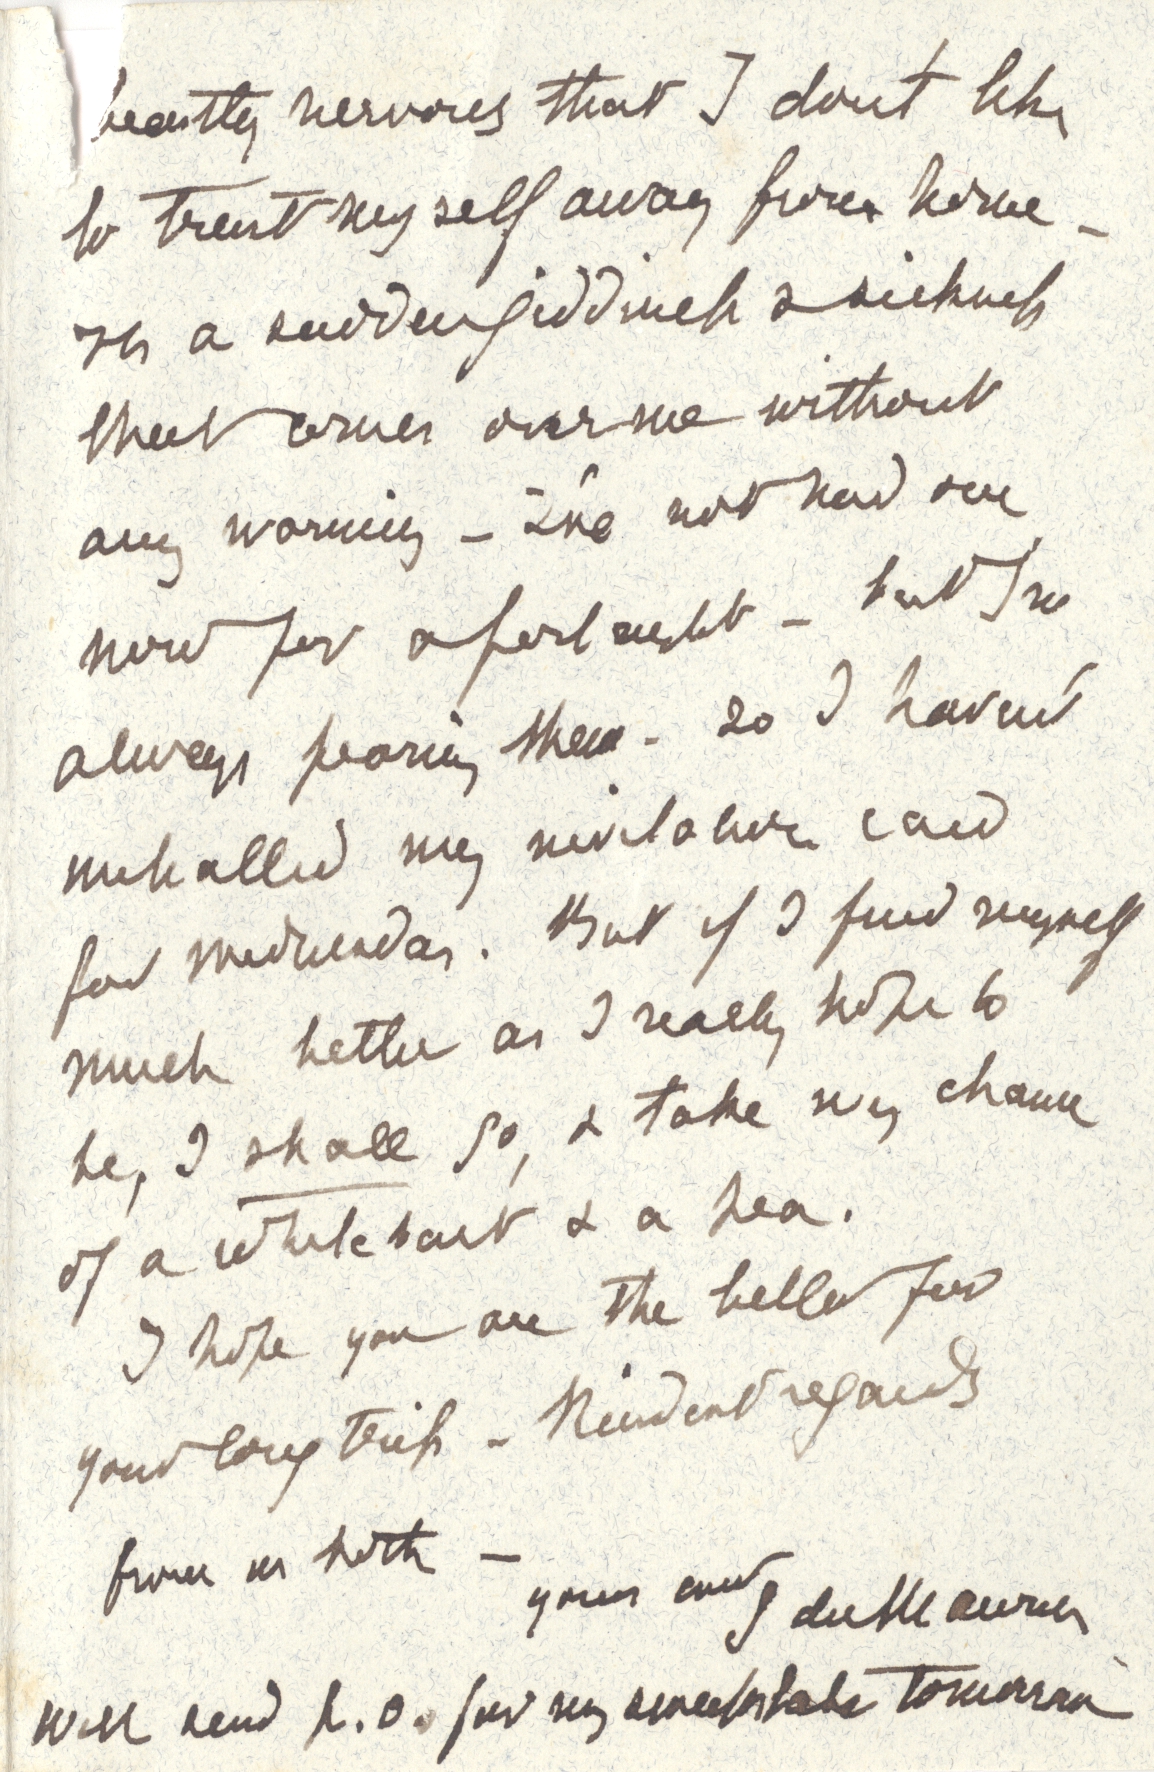 beastly nervous that I don't like
to trust myself away from home –
It's a sudden giddiness & sickness
that comes over me without
any warning – I've not had one
now for a fortnight – but I'm
always fearing them – so I haven't
my invitation card
for Wednesday. But if I find myself
much better as I really hope to
be, I shall go, & take my chance
of a whitebait & a pea.
I hope you are the better for
your long trip – Kindest regards
from us both –
yours ever
G du Maurier
Will send p.o. for my sweepstake tomorrow